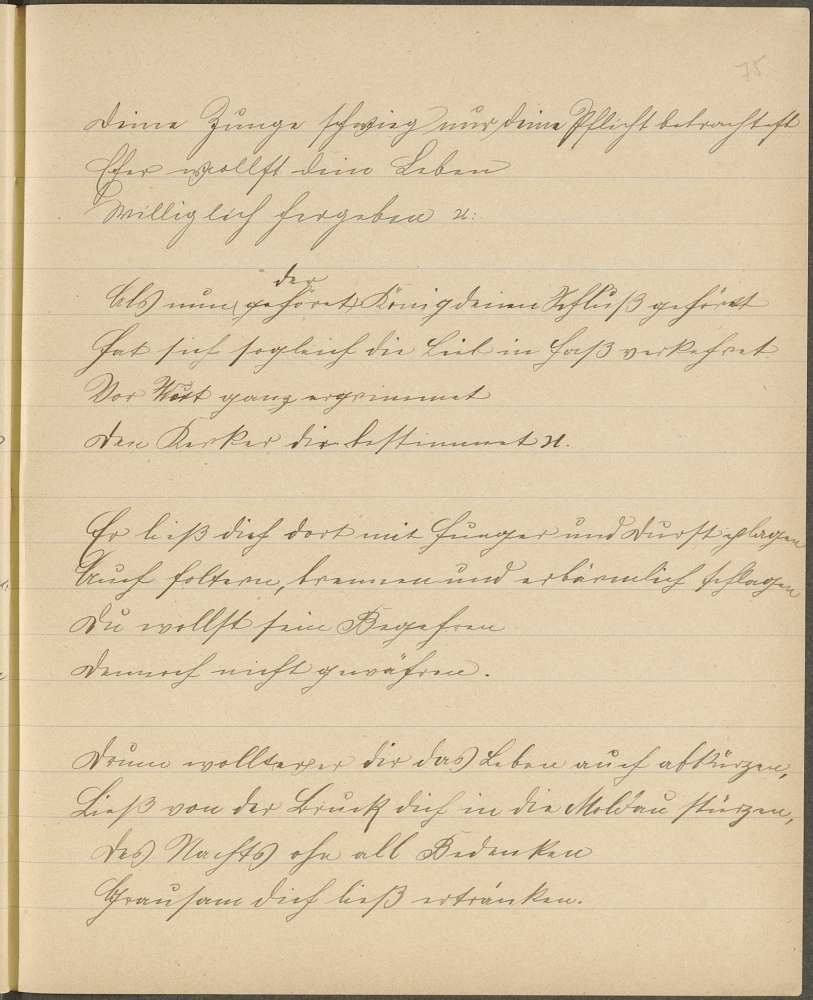 75
Deine Zunge schwieg nur deine Pflicht betrachtest
Eher wollst dein Leben
Williglich hergeben u:
der
Als nun (gehöret) König deinen Schluß gehöret
Hat sich sogleich die Lieb in Haß verkehret
Vor Wut ganz ergrimmet
Den Kerker dir bestimmet u.
Er ließ dich dort mit Hunger und Durst plagen
Auch foltern, brennen und erbärmlich schlagen
Du wollst sein Begehren
Dennoch nicht gewähren.
Drum wollte er dir das Leben auch abkürzen,
Ließ von der Bruck dich in die Moldau stürzen,
Des Nachts ohn all Bedenken
Grausam dich ließ ertränken.